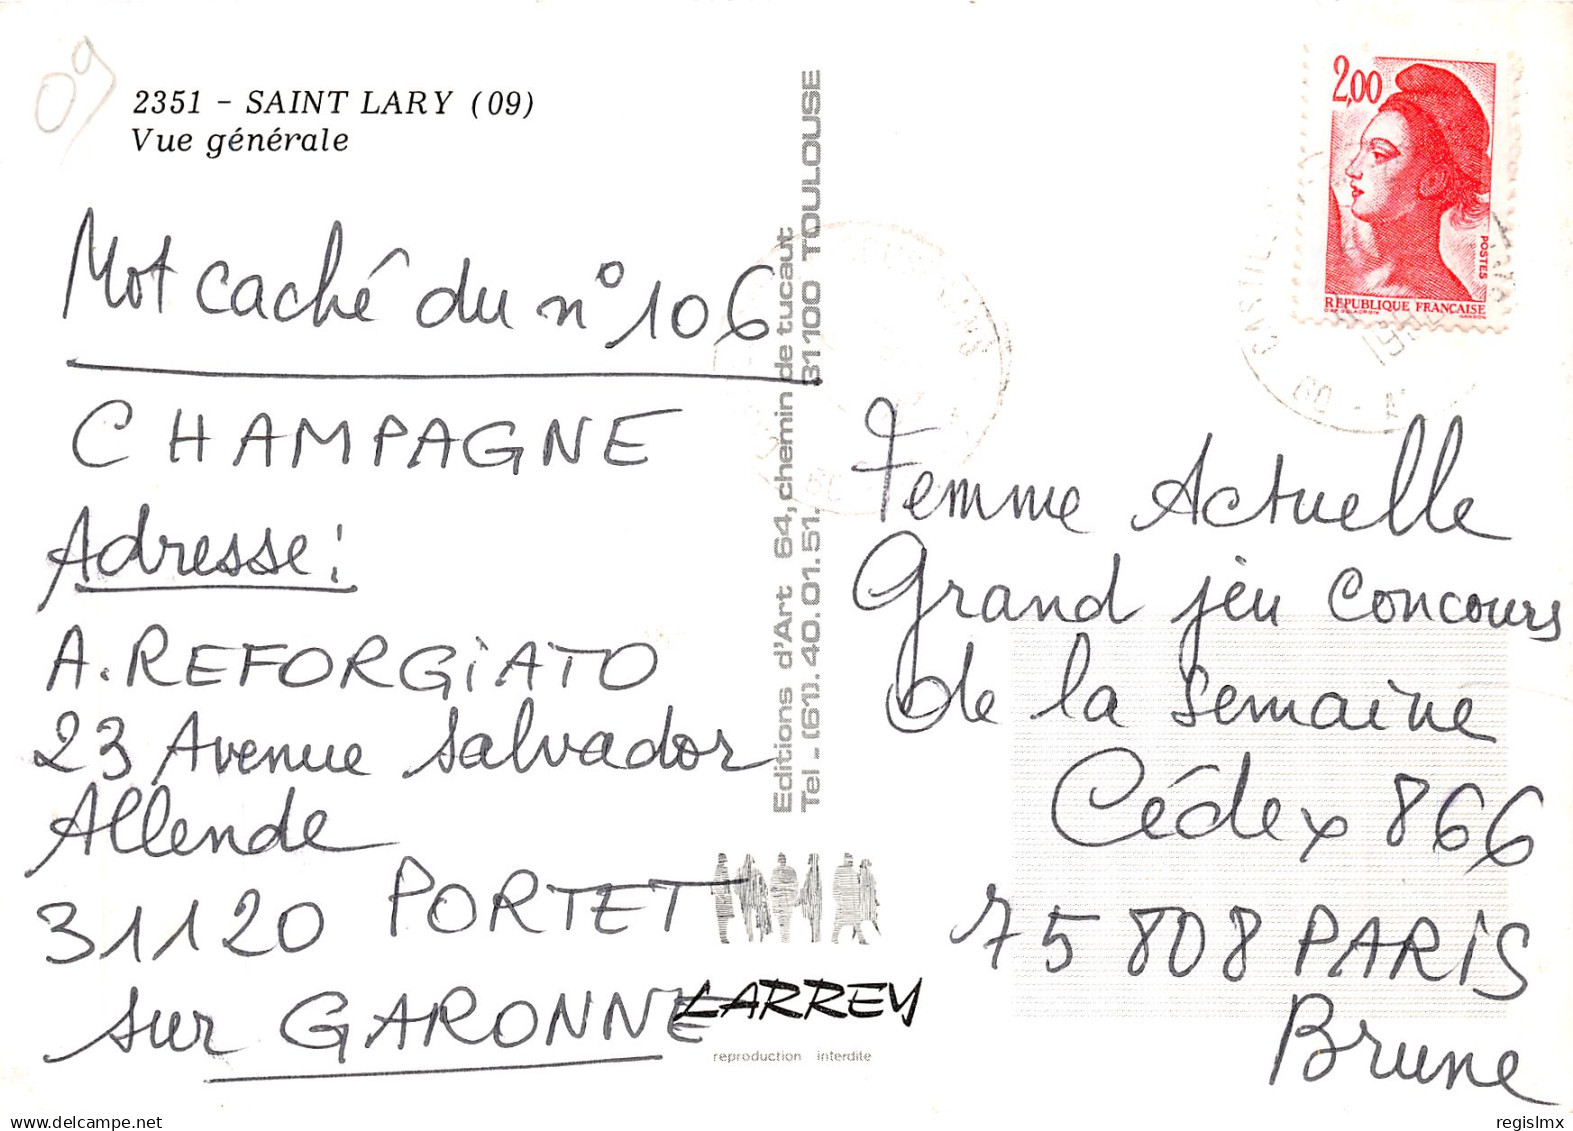 09
2351 - SAINT LARY (09)
Vue générale
Mot caché du n° 106
CHAMPAGNE
Adresse :
A. REFORGIATO
23 Avenue Salvador
Allende
31120 PORTET
sur GARONNE
Editions d'Art 64, chemin de tucaut 31100 TOULOUSE
Tel - (61). 40.01.51.
LARREY
reproduction interdite
2,00
POSTES
REPUBLIQUE FRANÇAISE
Femme Actuelle
Grand jeu Concours
de la semaine
Cédex 866
75808 PARIS
Brune
www.delcampe.net
regislmx